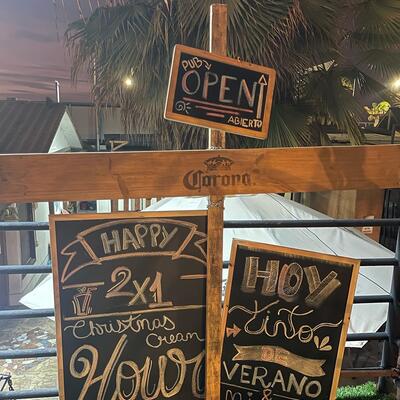 PUB
OPEN
ABIERTO
Corona
HAPPY
2x1
Christmas Cream
Hour
HOY
Tinto
DE
VERANO